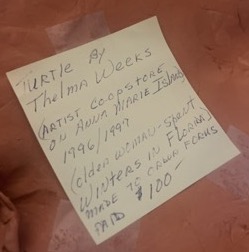 TURTLE By
Thelma Weeks
(ARTIST CO-OP STORE
ON ANNA MARIE ISLAND)
1996/1997
(Older woman - spent
WINTERS IN FLORIDA)
MADE TO
PAID $100-